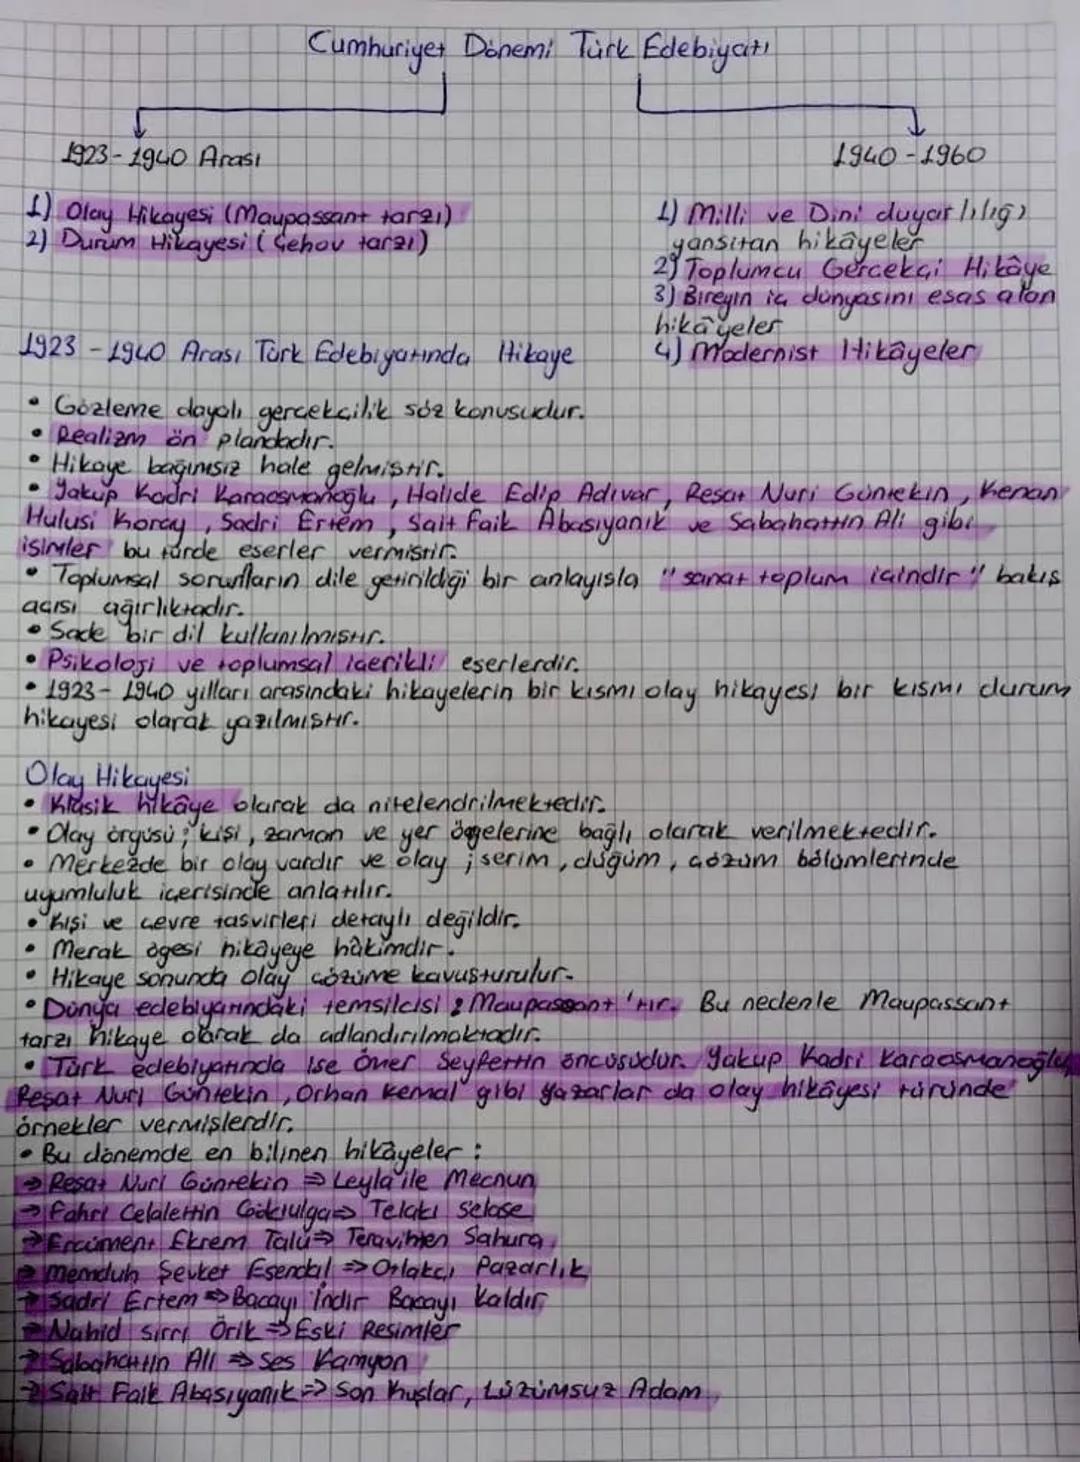 Cumhuriyet Dönemi Türk Edebiyatı
1923-1940 Arası
1) Olay Hikayesi (Maupassant tarzı)
2) Durum Hikayesi (Çehov tarzı)
1940-1960
1) Milli ve Dini duyarlılığı
yansıtan hikâyeler
2) Toplumcu Gerçekçi Hikâye
3) Bireyin iç dünyasını esas alan
hikâyeler
4) Modernist Hikâyeler
1923-1940 Arası Türk Edebiyatında Hikaye
• Gözleme dayalı gerçekçilik söz konusudur.
• Realizm ön plandadır.
• Hikaye bağımsız hale gelmiştir.
• Yakup Kadri Karaosmanoğlu, Halide Edip Adıvar, Reşat Nuri Güntekin, Kenan
Hulusi Koray, Sadri Ertem, Sait Faik Abasıyanık ve Sabahattin Ali gibi
isimler bu türde eserler vermiştir.
• Toplumsal sorunların dile getirildiği bir anlayışla "sanat toplum içindir" bakış
açısı ağırlıktadır.
• Sade bir dil kullanılmıştır.
• Psikoloji ve toplumsal içerikli eserlerdir.
• 1923-1940 yılları arasındaki hikayelerin bir kısmı olay hikayesi bir kısmı durum
hikayesi olarak yazılmıştır.
Olay Hikayesi
• Klasik hikâye olarak da nitelendrilmektedir.
• Olay örgüsü; kişi, zaman ve yer ögelerine bağlı olarak verilmektedir.
• Merkezde bir olay vardır ve olay; serim, düğüm, çözüm bölümlerinde
uyumluluk içerisinde anlatılır.
• Kişi ve çevre tasvirleri detaylı değildir.
• Merak ögesi hikâyeye hâkimdir.
• Hikaye sonunda olay çözüme kavuşturulur.
• Dünya edebiyatındaki temsilcisi; Maupassant'tır. Bu nedenle Maupassant
tarzı hikaye olarak da adlandırılmaktadır.
• Türk edebiyatında ise Ömer Seyfettin öncüsüdür. Yakup Kadri Karaosmanoğlu,
Reşat Nuri Güntekin, Orhan Kemal gibi yazarlar da olay hikâyesi türünde
örnekler vermişlerdir.
• Bu dönemde en bilinen hikâyeler:
→ Reşat Nuri Güntekin ⇒ Leyla ile Mecnun
→ Fahri Celalettin Göktulga ⇒ Telakı Selase
→ Ercüment Ekrem Talu ⇒ Teravihten Sahura
→ Memduh Şevket Esendal ⇒ Otlakçı Pazarlık
→ Sadri Ertem ⇒ Bacayı İndir Bacayı Kaldır
→ Nahid sırrı Örik ⇒ Eski Resimler
→ Sabahattin Ali ⇒ Ses Kamyon
→ Sait Faik Abasıyanık ⇒ Son Kuşlar, Lüzumsuz Adam